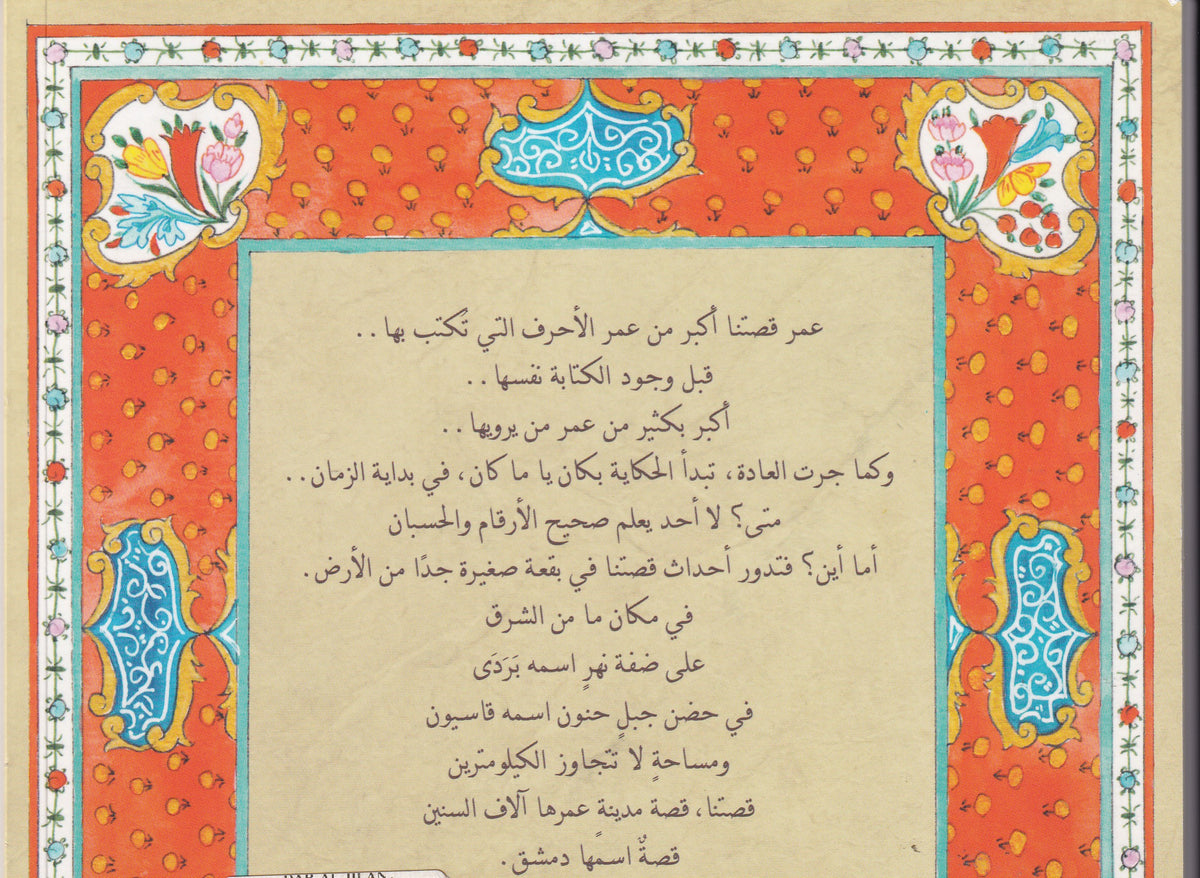 عمر قصتنا أكبر من عمر الأحرف التي تُكتب بها..
قبل وجود الكتابة نفسها..
أكبر بكثير من عمر من يرويها..
وكما جرت العادة، تبدأ الحكاية بكان يا ما كان، في بداية الزمان..
متى؟ لا أحد يعلم صحيح الأرقام والحسبان
أما أين؟ فتدور أحداث قصتنا في بقعة صغيرة جدًا من الأرض.
في مكان ما من الشرق
على ضفة نهرٍ اسمه بَرَدَى
في حضن جبلٍ حنون اسمه قاسيون
ومساحةٍ لا تتجاوز الكيلومترين
قصتنا، قصة مدينةٍ عمرها آلاف السنين
قصةٌ اسمها دمشق.